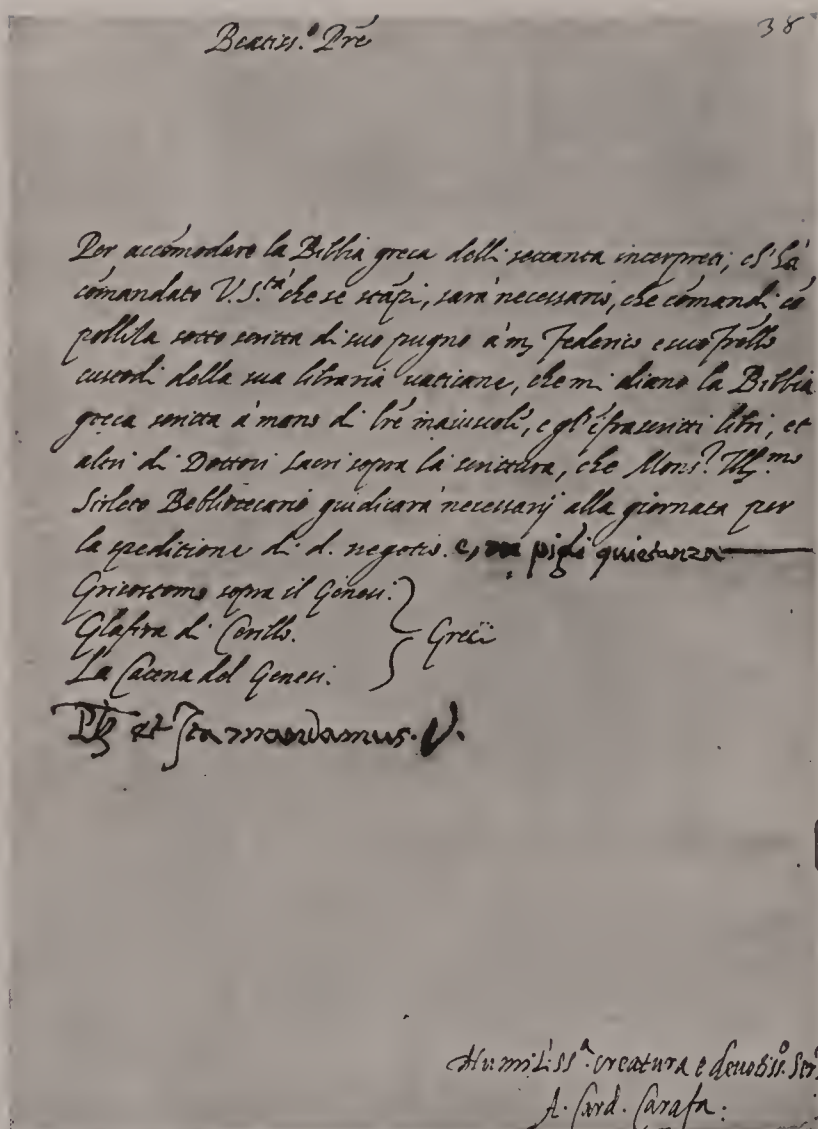 38
Beatiss.º Prẽ
Per accõmodare la Bibbia greca delli settanta interpreti, ch'ha
cõmandato V. S.tà che se stãpi, sarà necessario, che cõmandi cõ
polliza sotto scritta di suo pugno à m. Federico e suo frẽllo
custodi della sua libraria vaticana, che mi diano la Bibbia
greca scritta à mano di lrẽ maiuscole, e gl'ĩfrascritti libri, et
altri di Dottori sacri sopra la scrittura, che Mons.r Ill.mo
Sirleto Bebliotecario guidicarà necessarij alla giornata per
la speditione di d. negotio. e, ne pigli quietanza
Grisostomo sopra il Genesi.
Glafira di Cirillo.
La Catena del Genesi.
Greci
et Ita mandamus. V.
Humiliss.a creatura e devotiss.o Ser.
A. Card. Carafa.